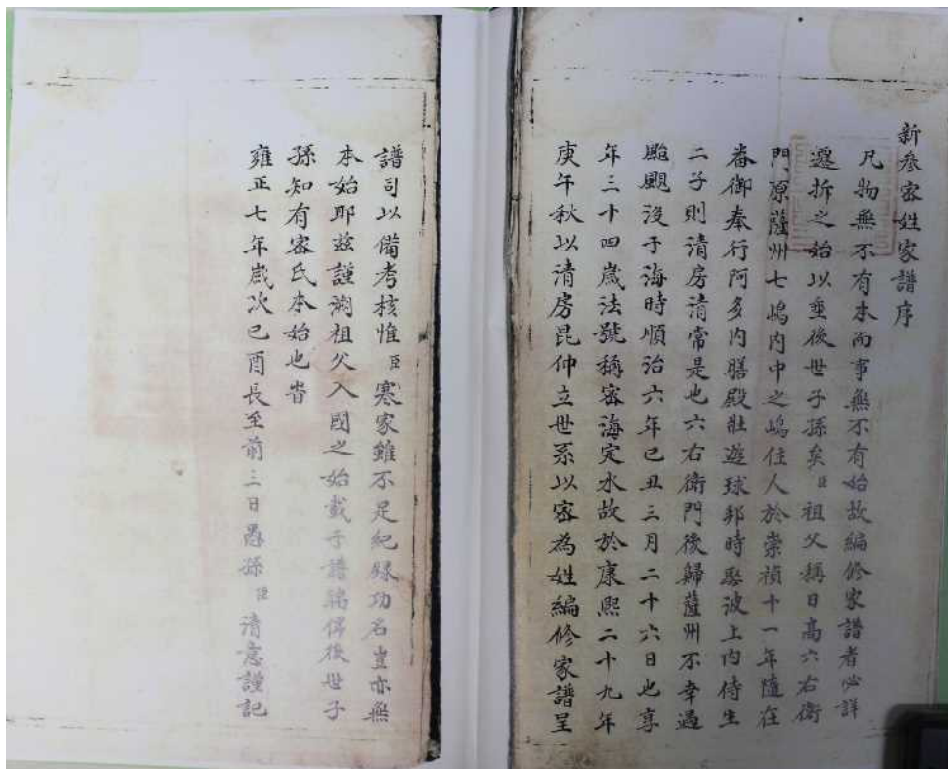 新參密姓家譜序
凡物無不有本而事無不有始故編修家譜者必詳
遷拆之始以垂後世子孫矣臣祖父稱日高六右衛
門原薩州七嶋內中之嶋住人於崇禎十一年隨在
番御奉行阿多內膳殿壯遊球邦時娶波上內侍生
二子則清房清常是也六右衛門後歸薩州不幸遇
颱颶沒于海時順治六年己丑三月二十六日也享
年三十四歲法號稱密海定水故於康熙二十九年
庚午秋以清房昆仲立世系以密為姓編修家譜呈
譜司以備考核惟臣寒家雖不足紀錄功名豈亦無
本始耶茲謹溯祖父入國之始載于譜端俾後世子
孫知有密氏本始也旹
雍正七年歲次己酉長至前三日愚孫臣清意謹記